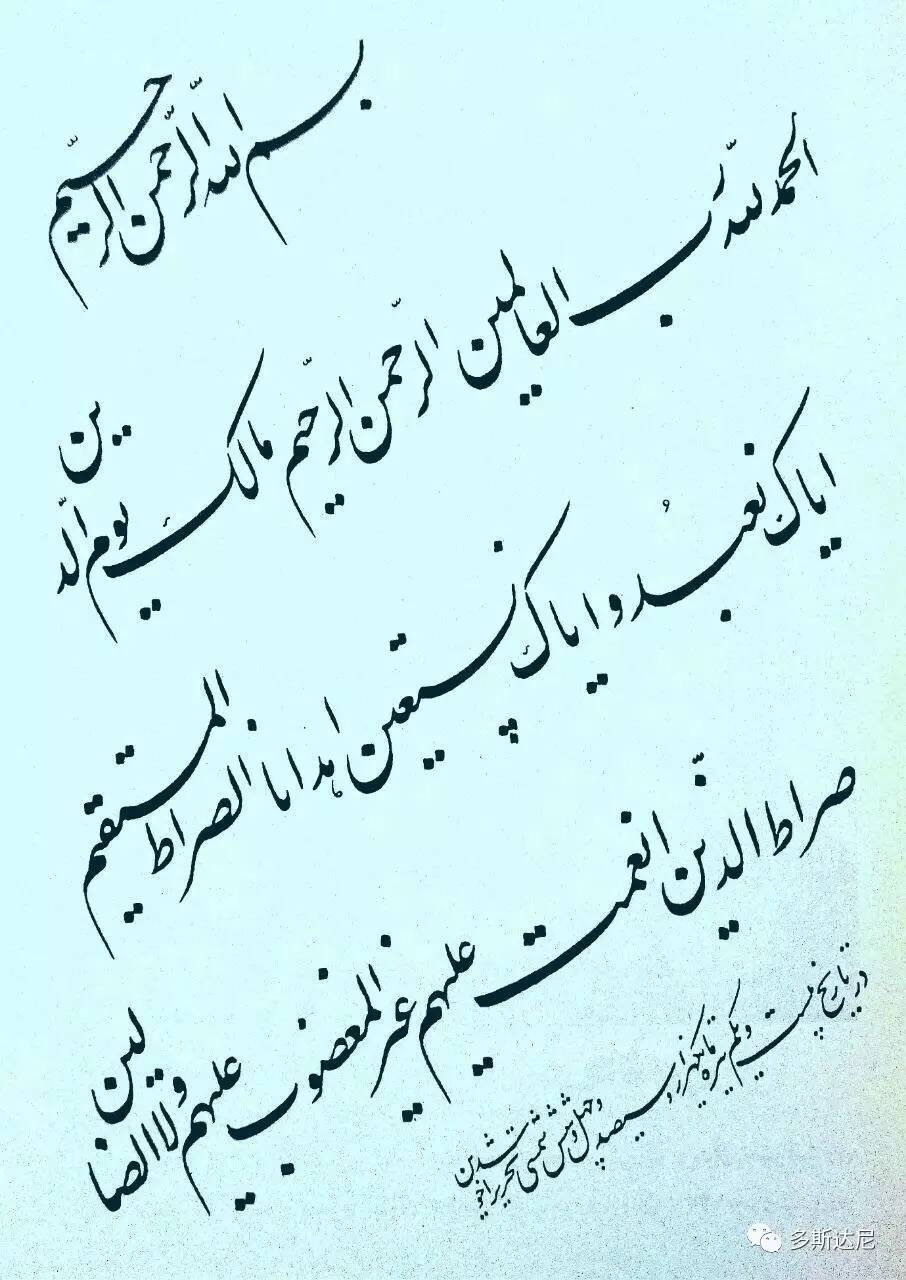 بسم الله الرّحمن الرّحیّم
الحمد لله ربّ العالمین الرّحمن الرّحیّم مالک یوم الدّین
ایاک نعبُد و ایاک نستعین اهدنا الصراط المستقیم
صراط الذّین انعمت علیهم غیر المغضوب علیهم ولا الضالین
در تاریخ بیست و یکم تیرماه یکهزار و سیصد
و چهل و شش شمسی تحریر
شد
多斯达尼